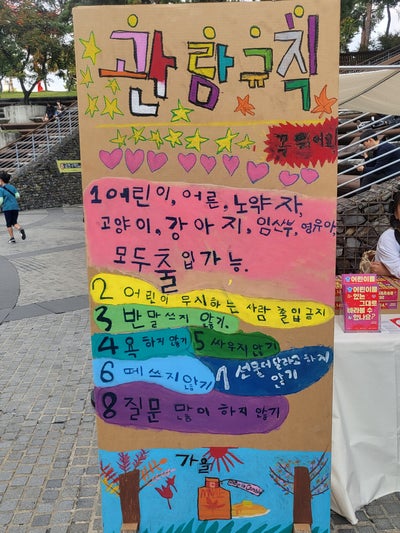 관람규칙
꼭 읽어요!
1 어린이, 어른, 노약자,
고양이, 강아지, 임산부, 영유아,
모두 출입가능.
2 어린이 무시하는 사람 출입금지
3 반말쓰지 않기.
4 욕 하지 않기
5 싸우지않기
6 떼쓰지않기
7 선물더달라고하지
않기
8 질문 많이 하지 않기
가을
어린이를
있는
그대로
바라볼 수
있나요?